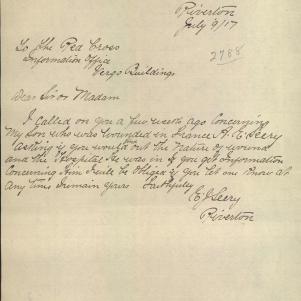 Riverton
July 9/17
2788
To The Red Cross
Information Office
Vergo Buildings
Dear Sir or Madam
I called on you a few weeks ago concerning
My son who was wounded in France A. E. Seery
asking if you would out the nature of wound
and the Hospital he was in if you get information
concerning him I will be obliged if you let me know at
any time I remain yours faithfully
E J Seery
Riverton